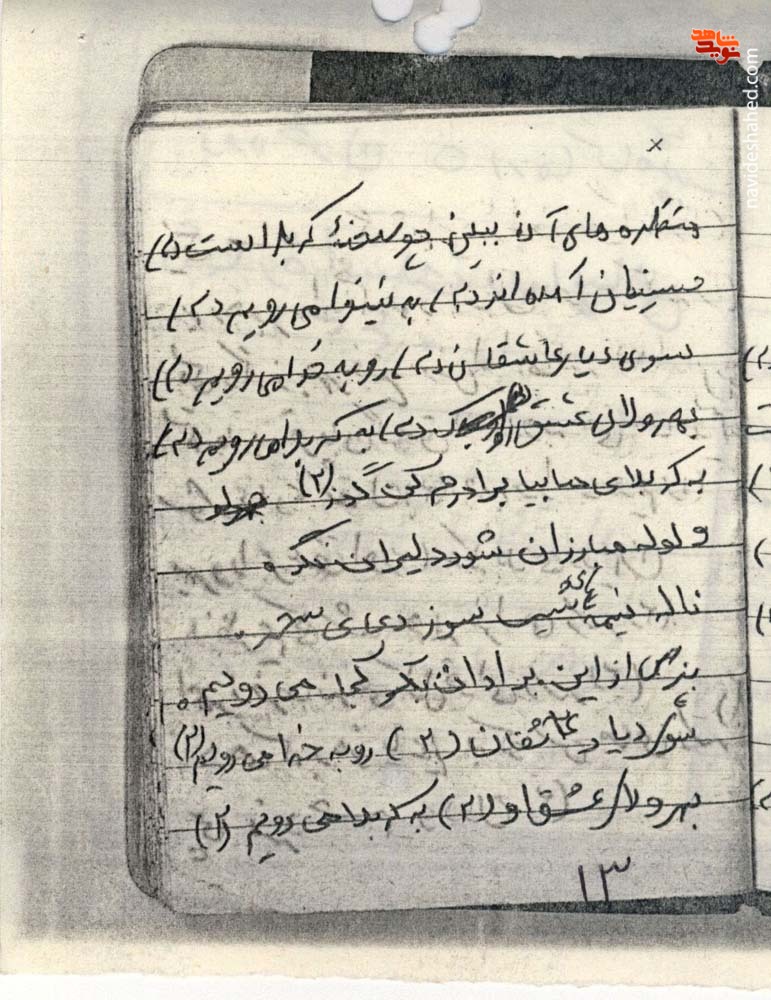 شاهد
نوید
navideshahed.com
×
منظره های آن ببین چو صحنهٔ کربلاست (۲)
حسینیان آمده اند (۲) به نینوا می رویم (۲)
سوی دیار عاشقان (۲) رو به خدا می رویم (۲)
بهر ولای عشق او (۲) به کربلا می رویم (۲)
به کربلای ما بیا برادرم کن گذر (۲)
ولوله مبارزان شور دلیران نگر
ناله نیمه شب سوز دعای سحر
بزمی از این برادران بگو کجا می رویم
سوی دیار عاشقان (۲) رو به خدا می رویم (۲)
بهر ولای عشق او (۲) به کربلا می رویم (۲)
۱۳